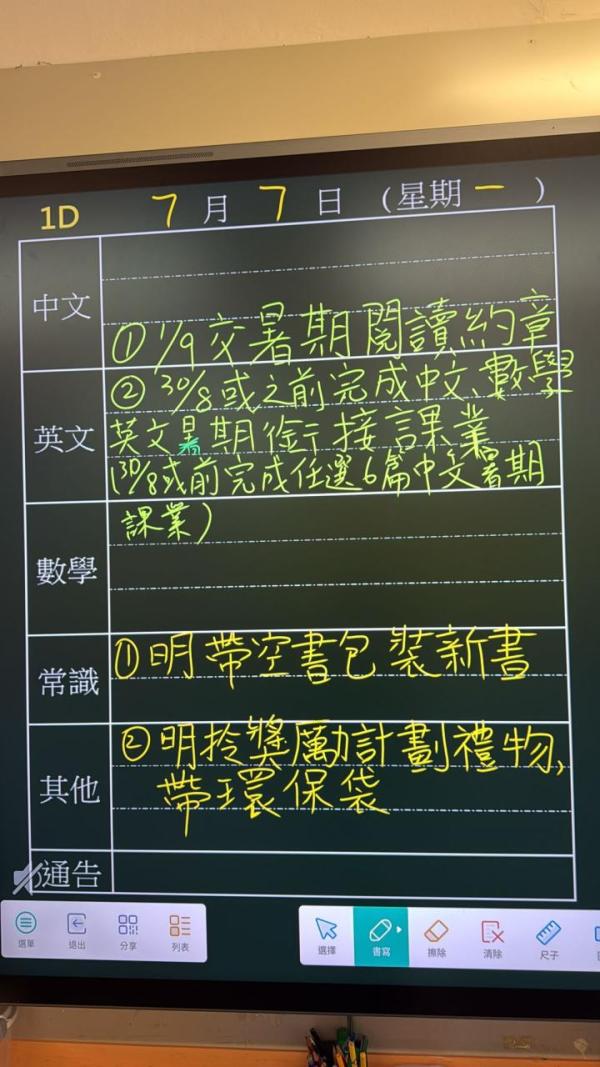 1D 7月7日(星期一)
中文
①1/9交暑期閱讀約章
②30/8或之前完成中文、數學
英文
英文暑期銜接課業
(30/8或前完成任選6篇中文暑期
課業)
數學
常識
①明帶空書包裝新書
其他
②明拎獎勵計劃禮物,
帶環保袋
通告
選單 退出 分享 列表 選擇 書寫 擦除 清除 尺子